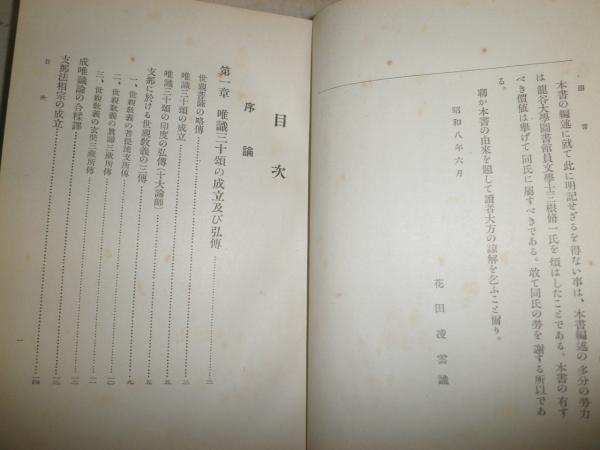 題言
本書の編述に就て此に明記せざるを得ない事は、本書編述の多分の勞力
は龍谷大學圖書館員文學士三根脩一氏を煩はしたことである。本書の有す
べき價値は擧げて同氏に屬すべきである。敢て同氏の勞を謝する所以であ
る。
聊か本書の由來を題して讀者大方の諒解を乞ふこと爾り。
昭和八年六月
花田凌雲識
目次
序論
第一章 唯識三十頌の成立及び弘傳……三
世親菩薩の略傳……三
唯識三十頌の成立……五
唯識三十頌の印度の弘傳(十大論師)……五
支那に於ける世親敎義の三傳……九
一、世親敎義の菩提流支所傳……一〇
二、世親敎義の眞諦三藏所傳……一一
三、世親敎義の玄奘三藏所傳……一二
成唯識論の合糅譯……一三
支那法相宗の成立……一四
目次
一